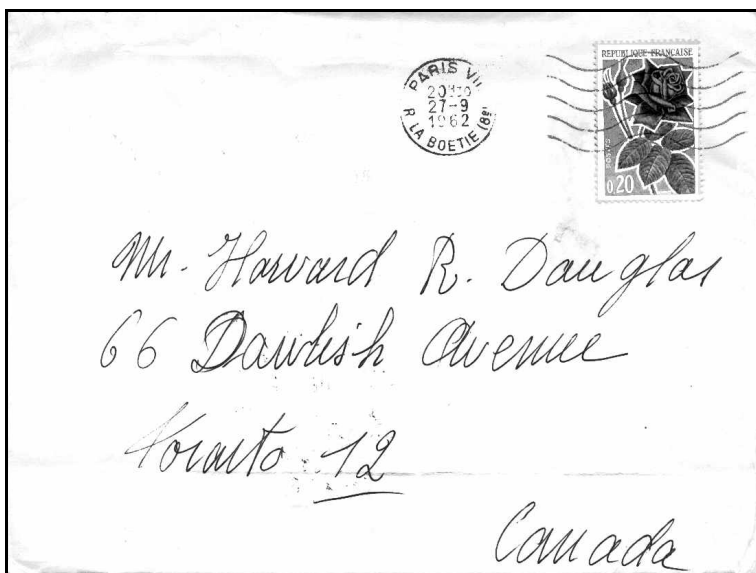 PARIS VIII
20H30
27-9
1962
R. LA BOETIE (8e)
REPUBLIQUE FRANÇAISE
POSTES
0,20
Mr. Harvard R. Douglas
66 Dawlish Avenue
Toronto 12
Canada